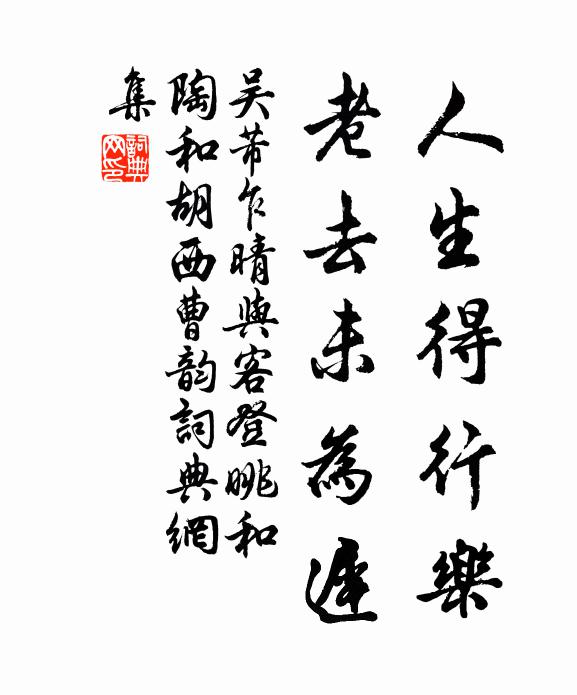 人生得行樂
老去未為遲
吳芾乍晴與客登眺和
陶和胡西曹韵詞典網
集
詞典網印